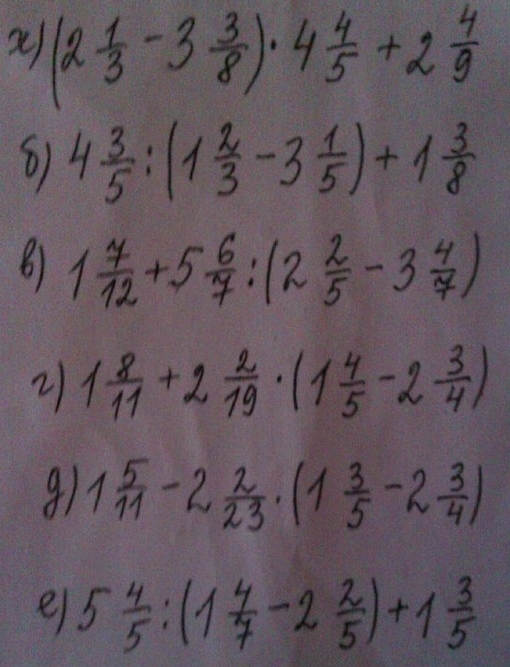 а) (2 1/3 - 3 3/8) · 4 4/5 + 2 4/9
б) 4 3/5 : (1 2/3 - 3 1/5) + 1 3/8
в) 1 7/12 + 5 6/7 : (2 2/5 - 3 4/7)
г) 1 8/11 + 2 2/19 · (1 4/5 - 2 3/4)
д) 1 5/11 - 2 2/23 · (1 3/5 - 2 3/4)
е) 5 4/5 : (1 4/7 - 2 2/5) + 1 3/5